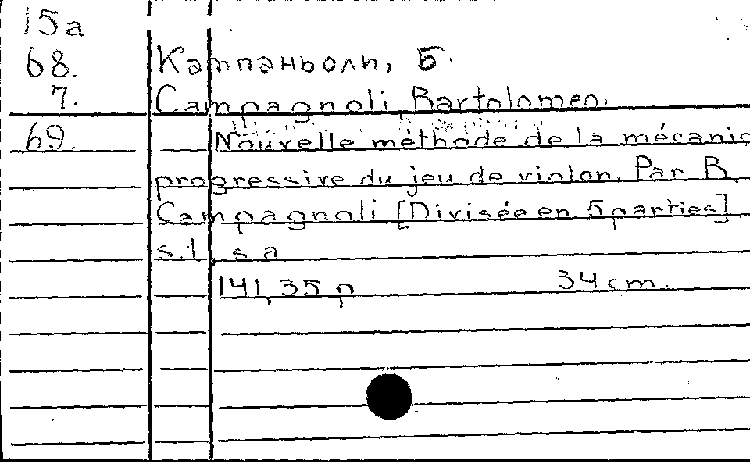 15a
68. Кампаньоли, Б.
7. Campagnoli, Bartolomeo.
69. Nouvelle méthode de la mécanic
progressive du jeu de violon. Par B.
Campagnoli [Divisée en 5 parties]
s.l., s.a
141, 35 p 34 cm.